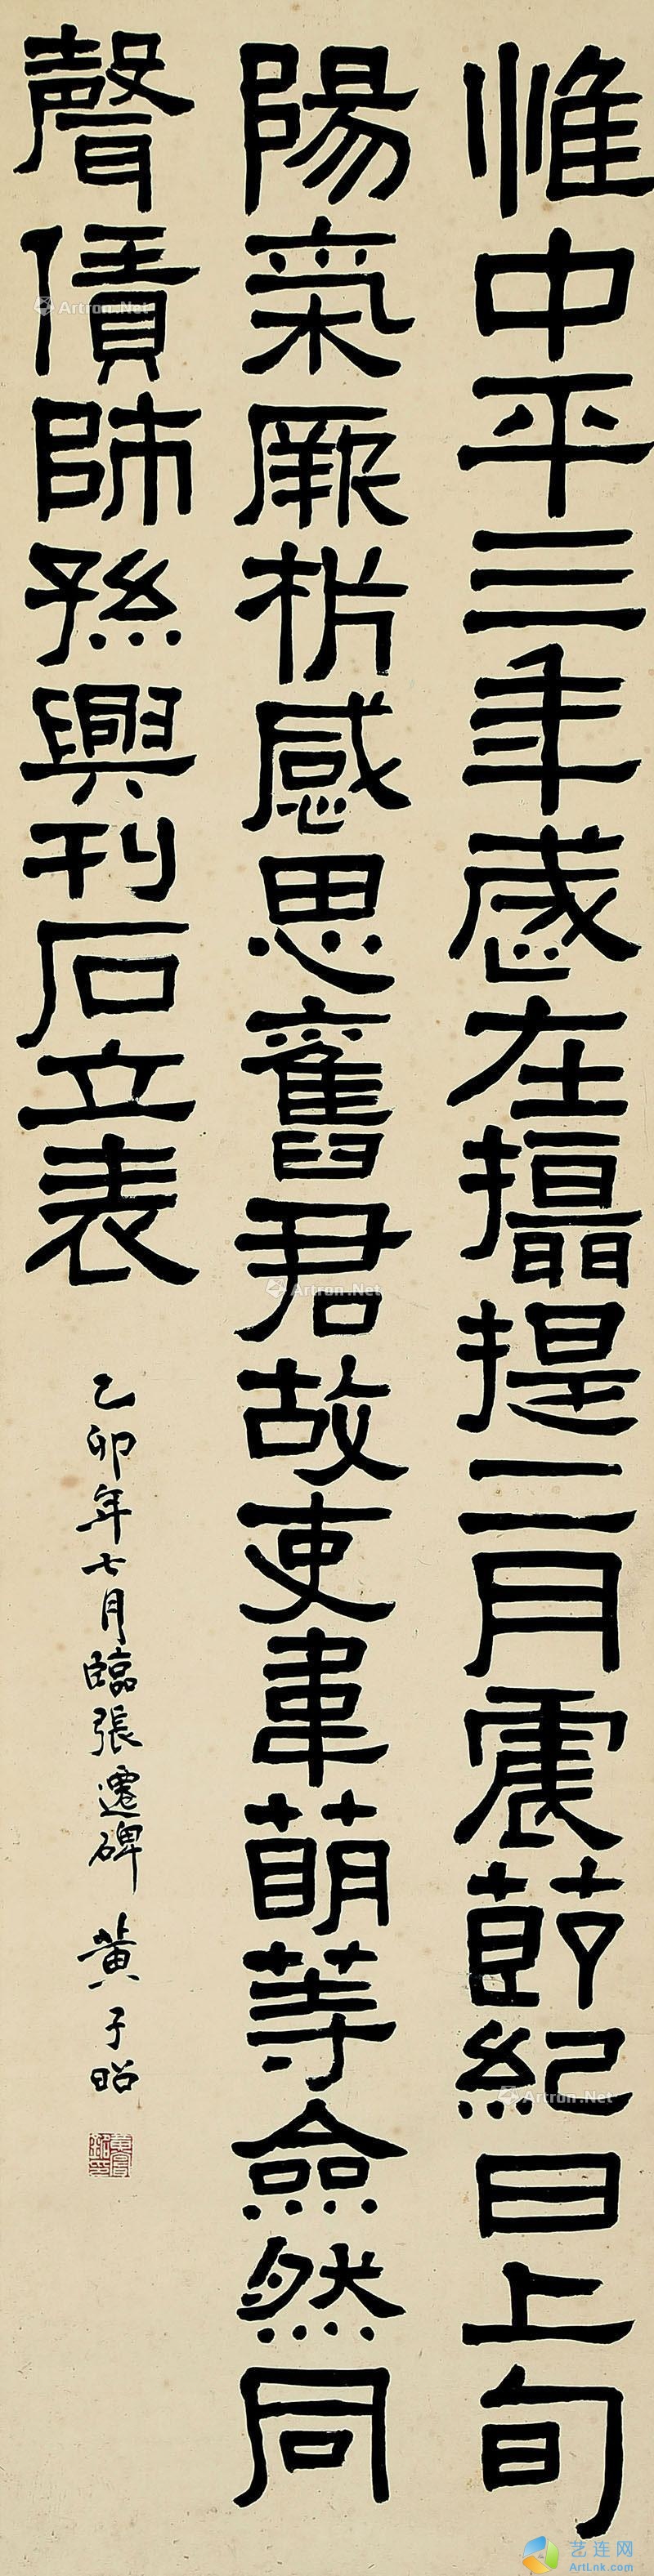 惟中平三年歲在攝提二月震莭紀日上旬
陽氣厥析感思舊君故吏韋萌等僉然同
聲賃師孫興刊石立表
乙卯年七月臨張遷碑 黃子昭
Artron.Net
Artron.Net
Artron.Net
艺连网
ArtLnk.com